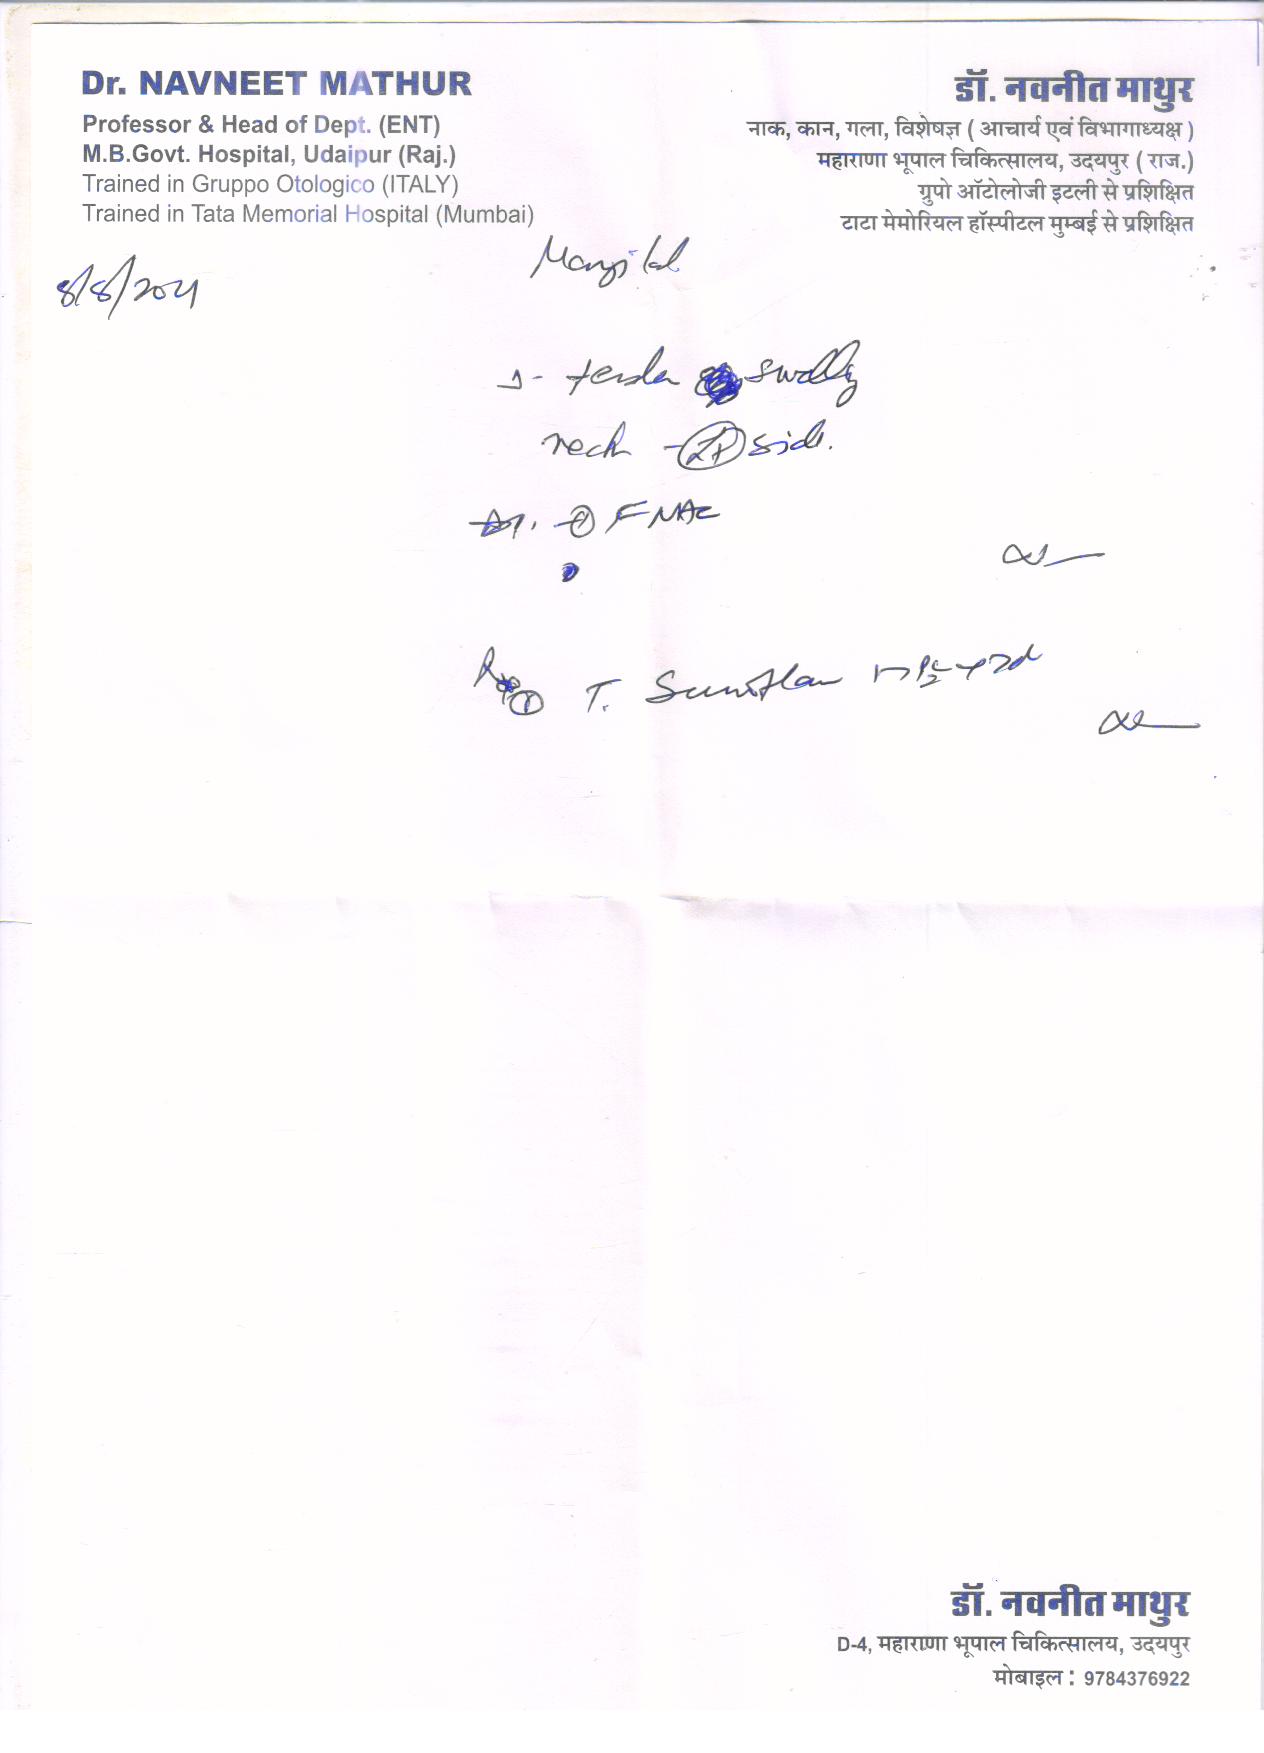 Dr. NAVNEET MATHUR
Professor & Head of Dept. (ENT)
M.B.Govt. Hospital, Udaipur (Raj.)
Trained in Gruppo Otologico (ITALY)
Trained in Tata Memorial Hospital (Mumbai)
डॉ. नवनीत माथुर
नाक, कान, गला, विशेषज्ञ ( आचार्य एवं विभागाध्यक्ष )
महाराणा भूपाल चिकित्सालय, उदयपुर ( राज.)
ग्रुपो ऑटोलोजी इटली से प्रशिक्षित
टाटा मेमोरियल हॉस्पीटल मुम्बई से प्रशिक्षित
8/8/2021
neck - side.
① FNAC
① T.
डॉ. नवनीत माथुर
D-4, महाराणा भूपाल चिकित्सालय, उदयपुर
मोबाइल : 9784376922